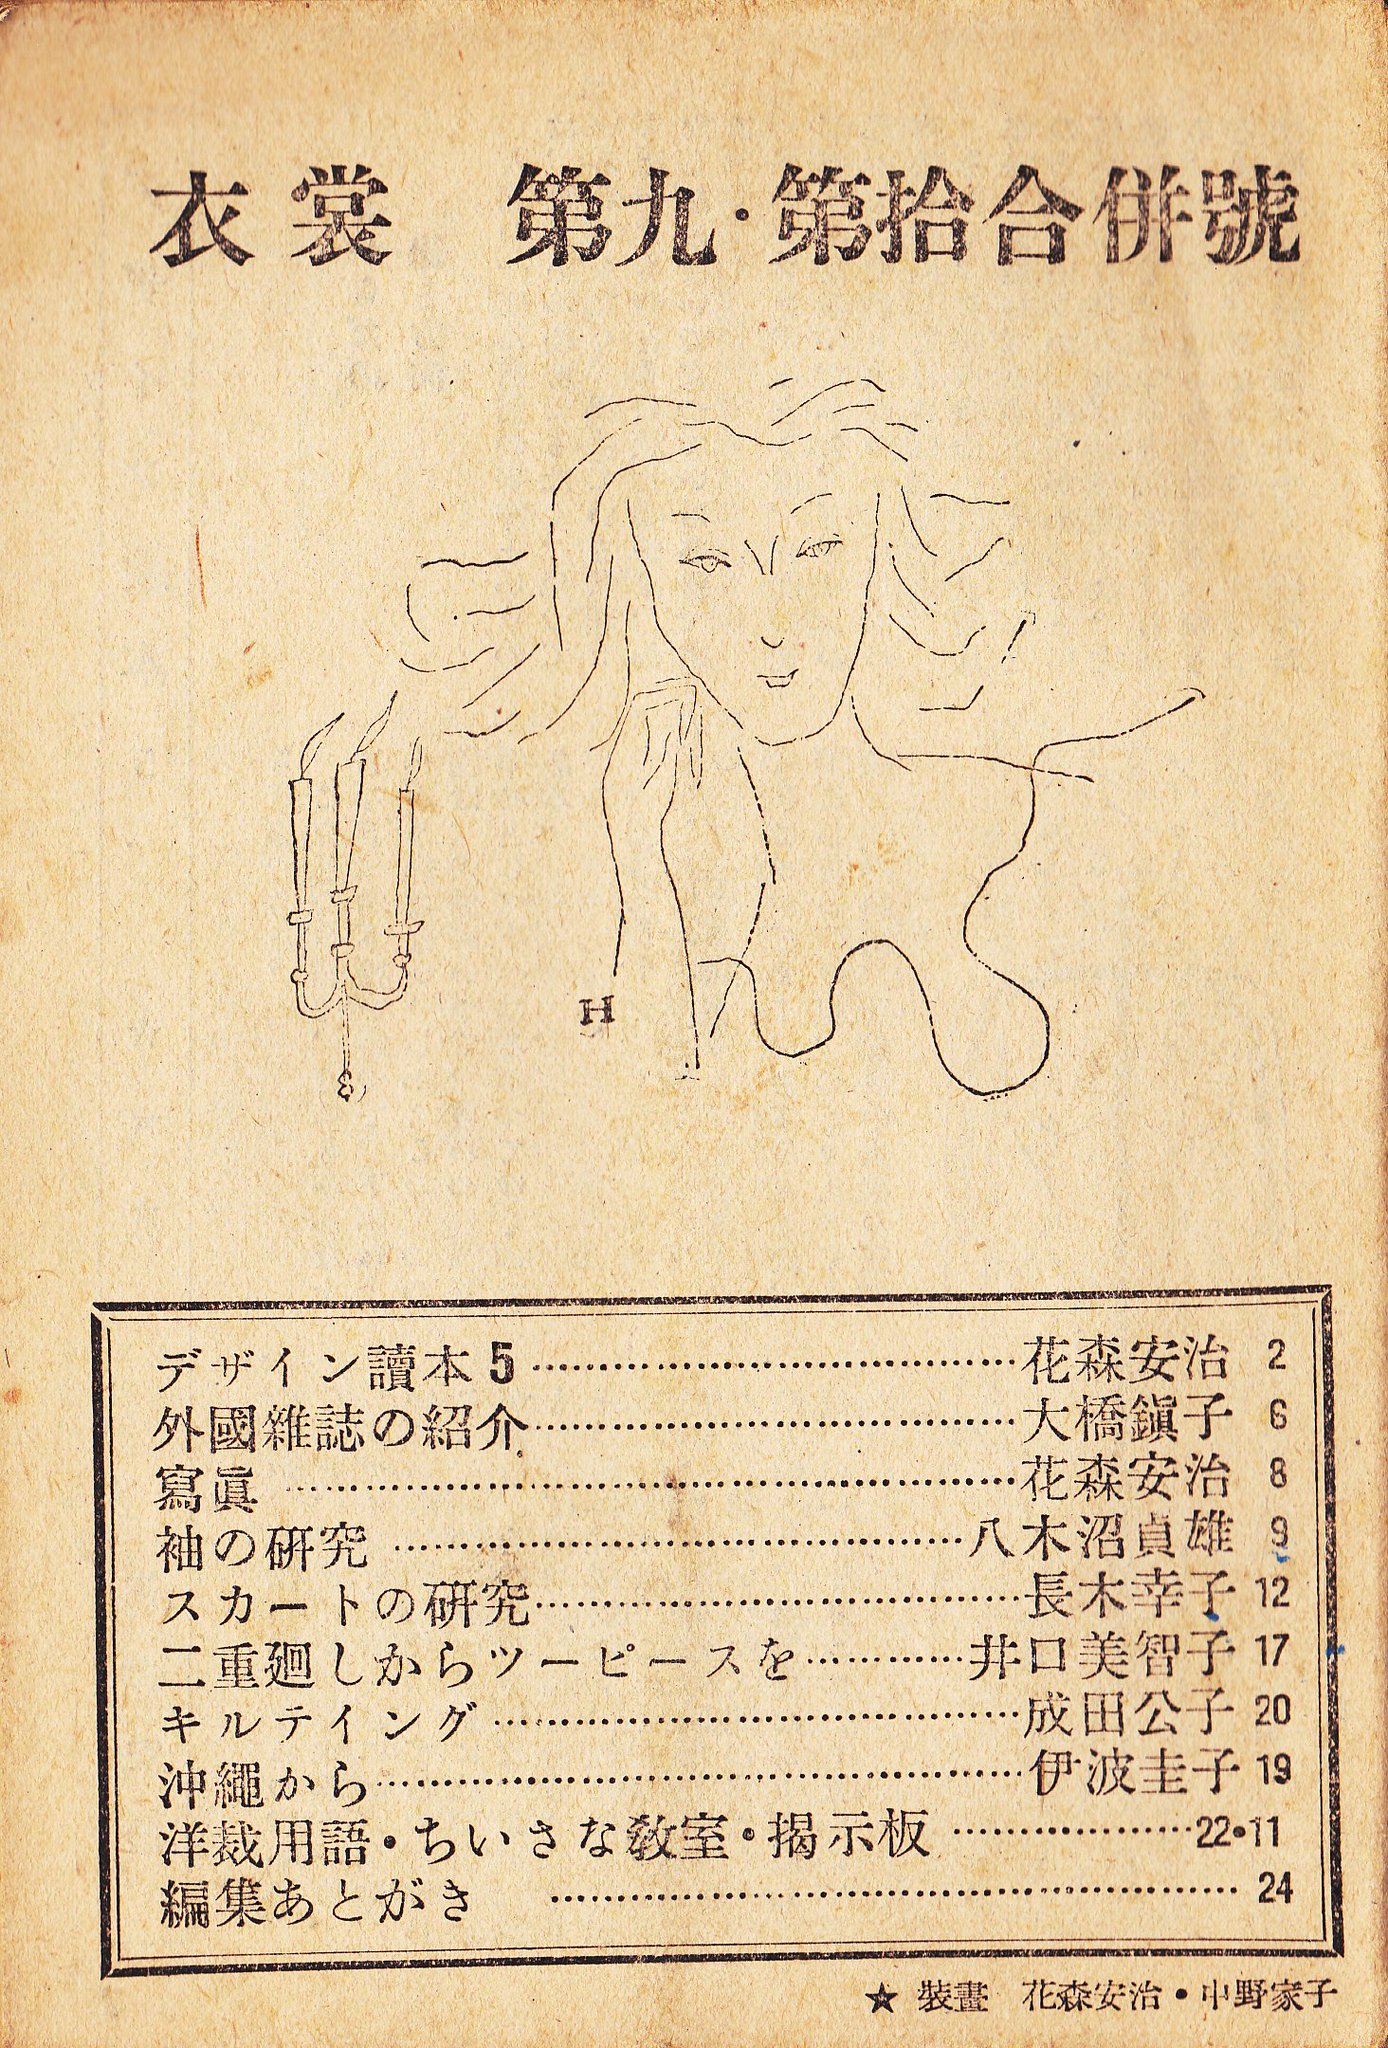 衣裳 第九・第拾合併號
H
デザイン讀本5……………………………花森安治 2
外國雜誌の紹介……………………………大橋鎭子 6
寫眞……………………………花森安治 8
袖の研究……………………………八木沼貞雄 9
スカートの研究……………………………長木幸子 12
二重廻しからツーピースを…………井口美智子 17
キルテイング……………………………成田公子 20
沖繩から……………………………伊波圭子 19
洋裁用語・ちいさな敎室・揭示板……………22・11
編集あとがき……………………………24
★ 裝畫 花森安治・中野家子